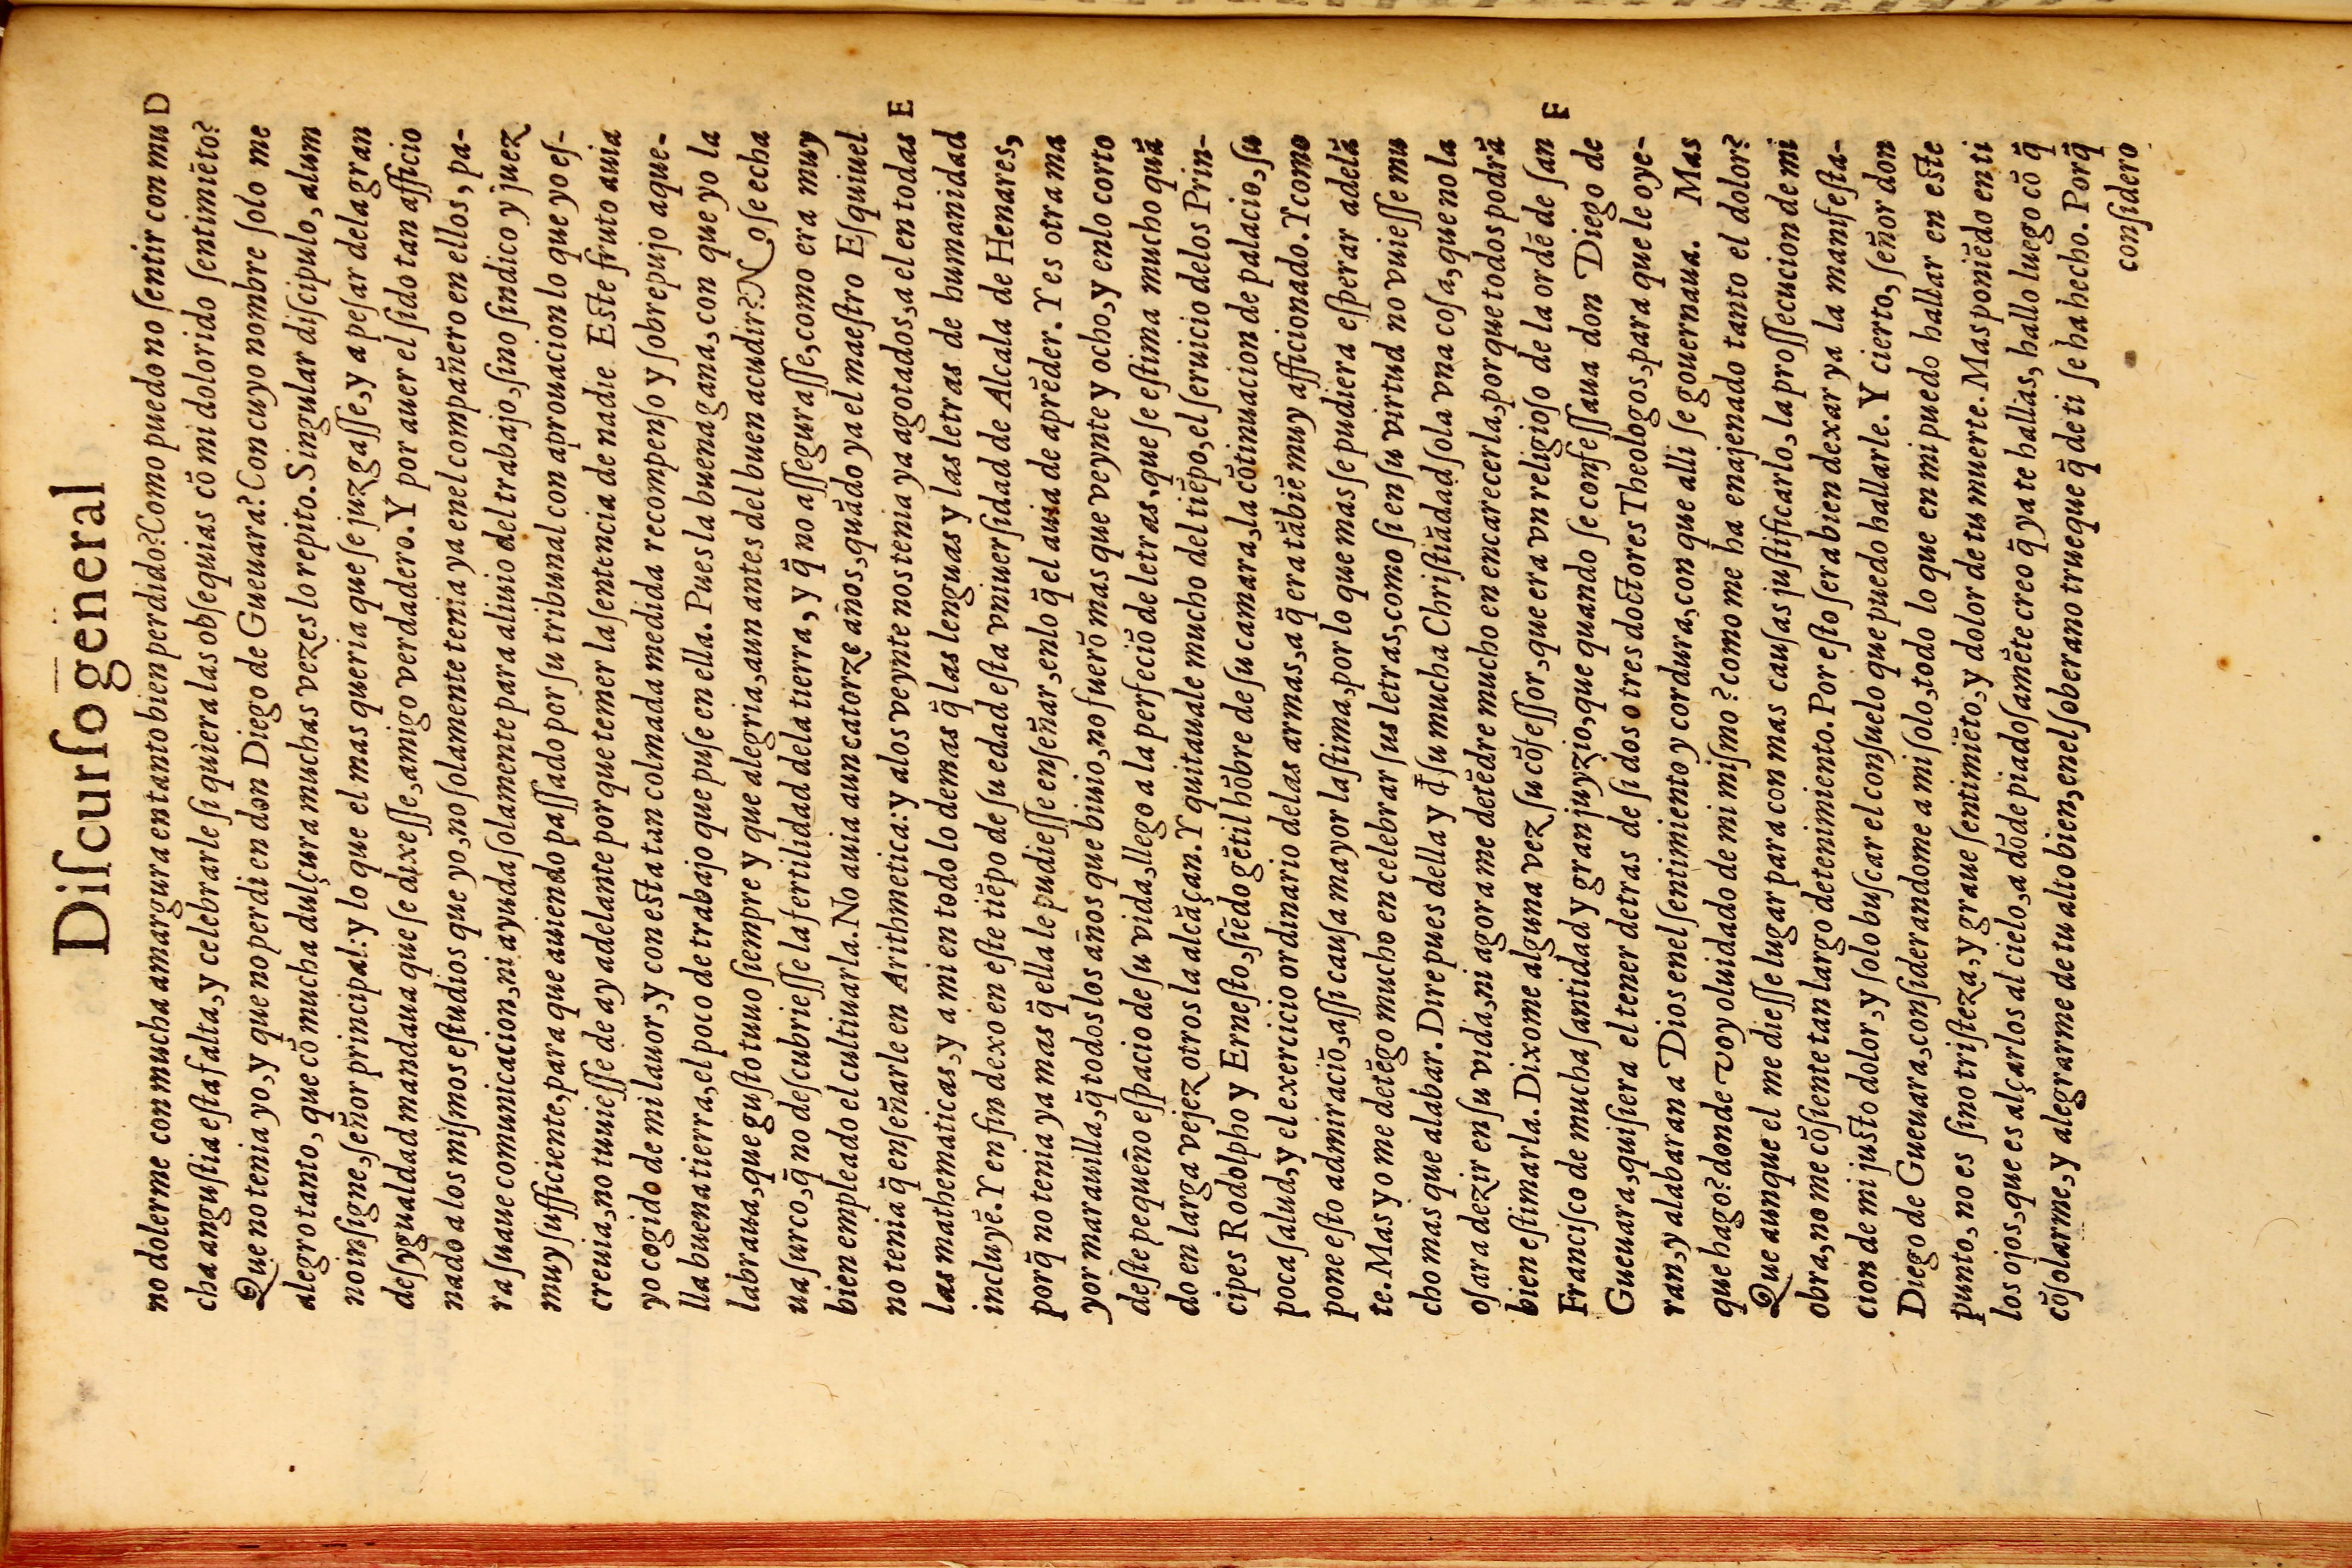 Diſcurſo general
no dolerme con mucha amargura en tanto bien perdido? Como puedo no ſentir con mu D
cha anguſtia eſta falta, y celebrarle ſi quiera las obſequias cō mi dolorido ſentimiēto?
Que no tenia yo, y que no perdi en don Diego de Gueuara? Con cuyo nombre ſolo me
alegro tanto, que cō mucha dulçura muchas vezes lo repito. Singular diſcipulo, alum
no inſigne, ſeñor principal: y lo que el mas queria que ſe juzgaſſe, y a peſar de la gran
deſygualdad mandaua que ſe dixeſſe, amigo verdadero. Y por auer el ſido tan afficio
nado a los miſmos eſtudios que yo, no ſolamente tenia ya en el compañero en ellos, pa-
ra ſuaue comunicacion, ni ayuda ſolamente para aliuio del trabajo, ſino ſindico y juez
muy ſufficiente, para que auiendo paſſado por ſu tribunal con aprouacion lo que yo eſ-
creuia, no tuuieſſe de ay adelante porque temer la ſentencia de nadie. Eſte fruto auia
yo cogido de mi lauor, y con eſta tan colmada medida recompenſo y ſobrepujo aque-
lla buena tierra, el poco de trabajo que puſe en ella. Pues la buena gana, con que yo la
labraua, que guſto tuuo ſiempre y que alegria, aun antes del buen acudir? No ſe echa
ua ſurco, q̄ no deſcubrieſſe la fertilidad de la tierra, y q̄ no aſſeguraſſe, como era muy
bien empleado el cultiuarla. No auia aun catorze años, quādo ya el maeſtro Eſquiuel
no tenia q̄ enſeñarle en Arithmetica: y a los veynte nos tenia ya agotados, a el en todas E
las mathematicas, y a mi en todo lo demas q̄ las lenguas y las letras de humanidad
incluyē. Y en fin dexo en eſte tiēpo de ſu edad eſta vniuerſidad de Alcala de Henares,
porq̄ no tenia ya mas q̄ ella le pudieſſe enſeñar, en lo q̄ el auia de aprēder. Y es otra ma
yor marauilla, q̄ todos los años que biuio, no fuerō mas que veynte y ocho, y en lo corto
deſte pequeño eſpacio de ſu vida, llego a la perfeciō de letras, que ſe eſtima mucho quā
do en larga vejez otros la alcāçan. Y quitauale mucho del tiēpo, el ſeruicio de los Prin-
cipes Rodolpho y Erneſto, ſiēdo gētil hōbre de ſu camara, la cōtinuacion de palacio, ſu
poca ſalud, y el exercicio ordinario de las armas, a q̄ era tābiē muy afficionado. Y como
pone eſto admiraciō, aſſi cauſa mayor laſtima, por lo que mas ſe pudiera eſperar adelā
te. Mas yo me detēgo mucho en celebrar ſus letras, como ſi en ſu virtud no vuieſſe mu
cho mas que alabar. Dire pues della y đ ſu mucha Chriſtiādad ſola vna coſa, que no la
oſara dezir en ſu vida, ni agora me detēdre mucho en encarecerla, porque todos podrā
bien eſtimarla. Dixome alguna vez ſu cōfeſſor, que era vn religioſo de la ordē de ſan F
Franciſco de mucha ſantidad y gran juyzio, que quando ſe confeſſaua don Diego de
Gueuara, quiſiera el tener detras de ſi dos o tres doctores Theologos, para que le oye-
ran, y alabaran a Dios en el ſentimiento y cordura, con que alli ſe gouernaua. Mas
que hago? donde voy oluidado de mi miſmo? como me ha enajenado tanto el dolor?
Que aunque el me dieſſe lugar para con mas cauſas juſtificarlo, la proſſecucion de mi
obra, no me cōſiente tan largo detenimiento. Por eſto ſera bien dexar ya la manifeſta-
cion de mi juſto dolor, y ſolo buſcar el conſuelo que puedo hallarle. Y cierto, ſeñor don
Diego de Gueuara, conſiderandome a mi ſolo, todo lo que en mi puedo hallar en eſte
punto, no es ſino triſteza, y graue ſentimiēto, y dolor de tu muerte. Mas poniēdo en ti
los ojos, que es alçarlos al cielo, a dōde piadoſamēte creo q̄ ya te hallas, hallo luego cō q̄
cōſolarme, y alegrarme de tu alto bien, en el ſoberano trueque q̄ de ti ſe ha hecho. Porq̄
conſidero